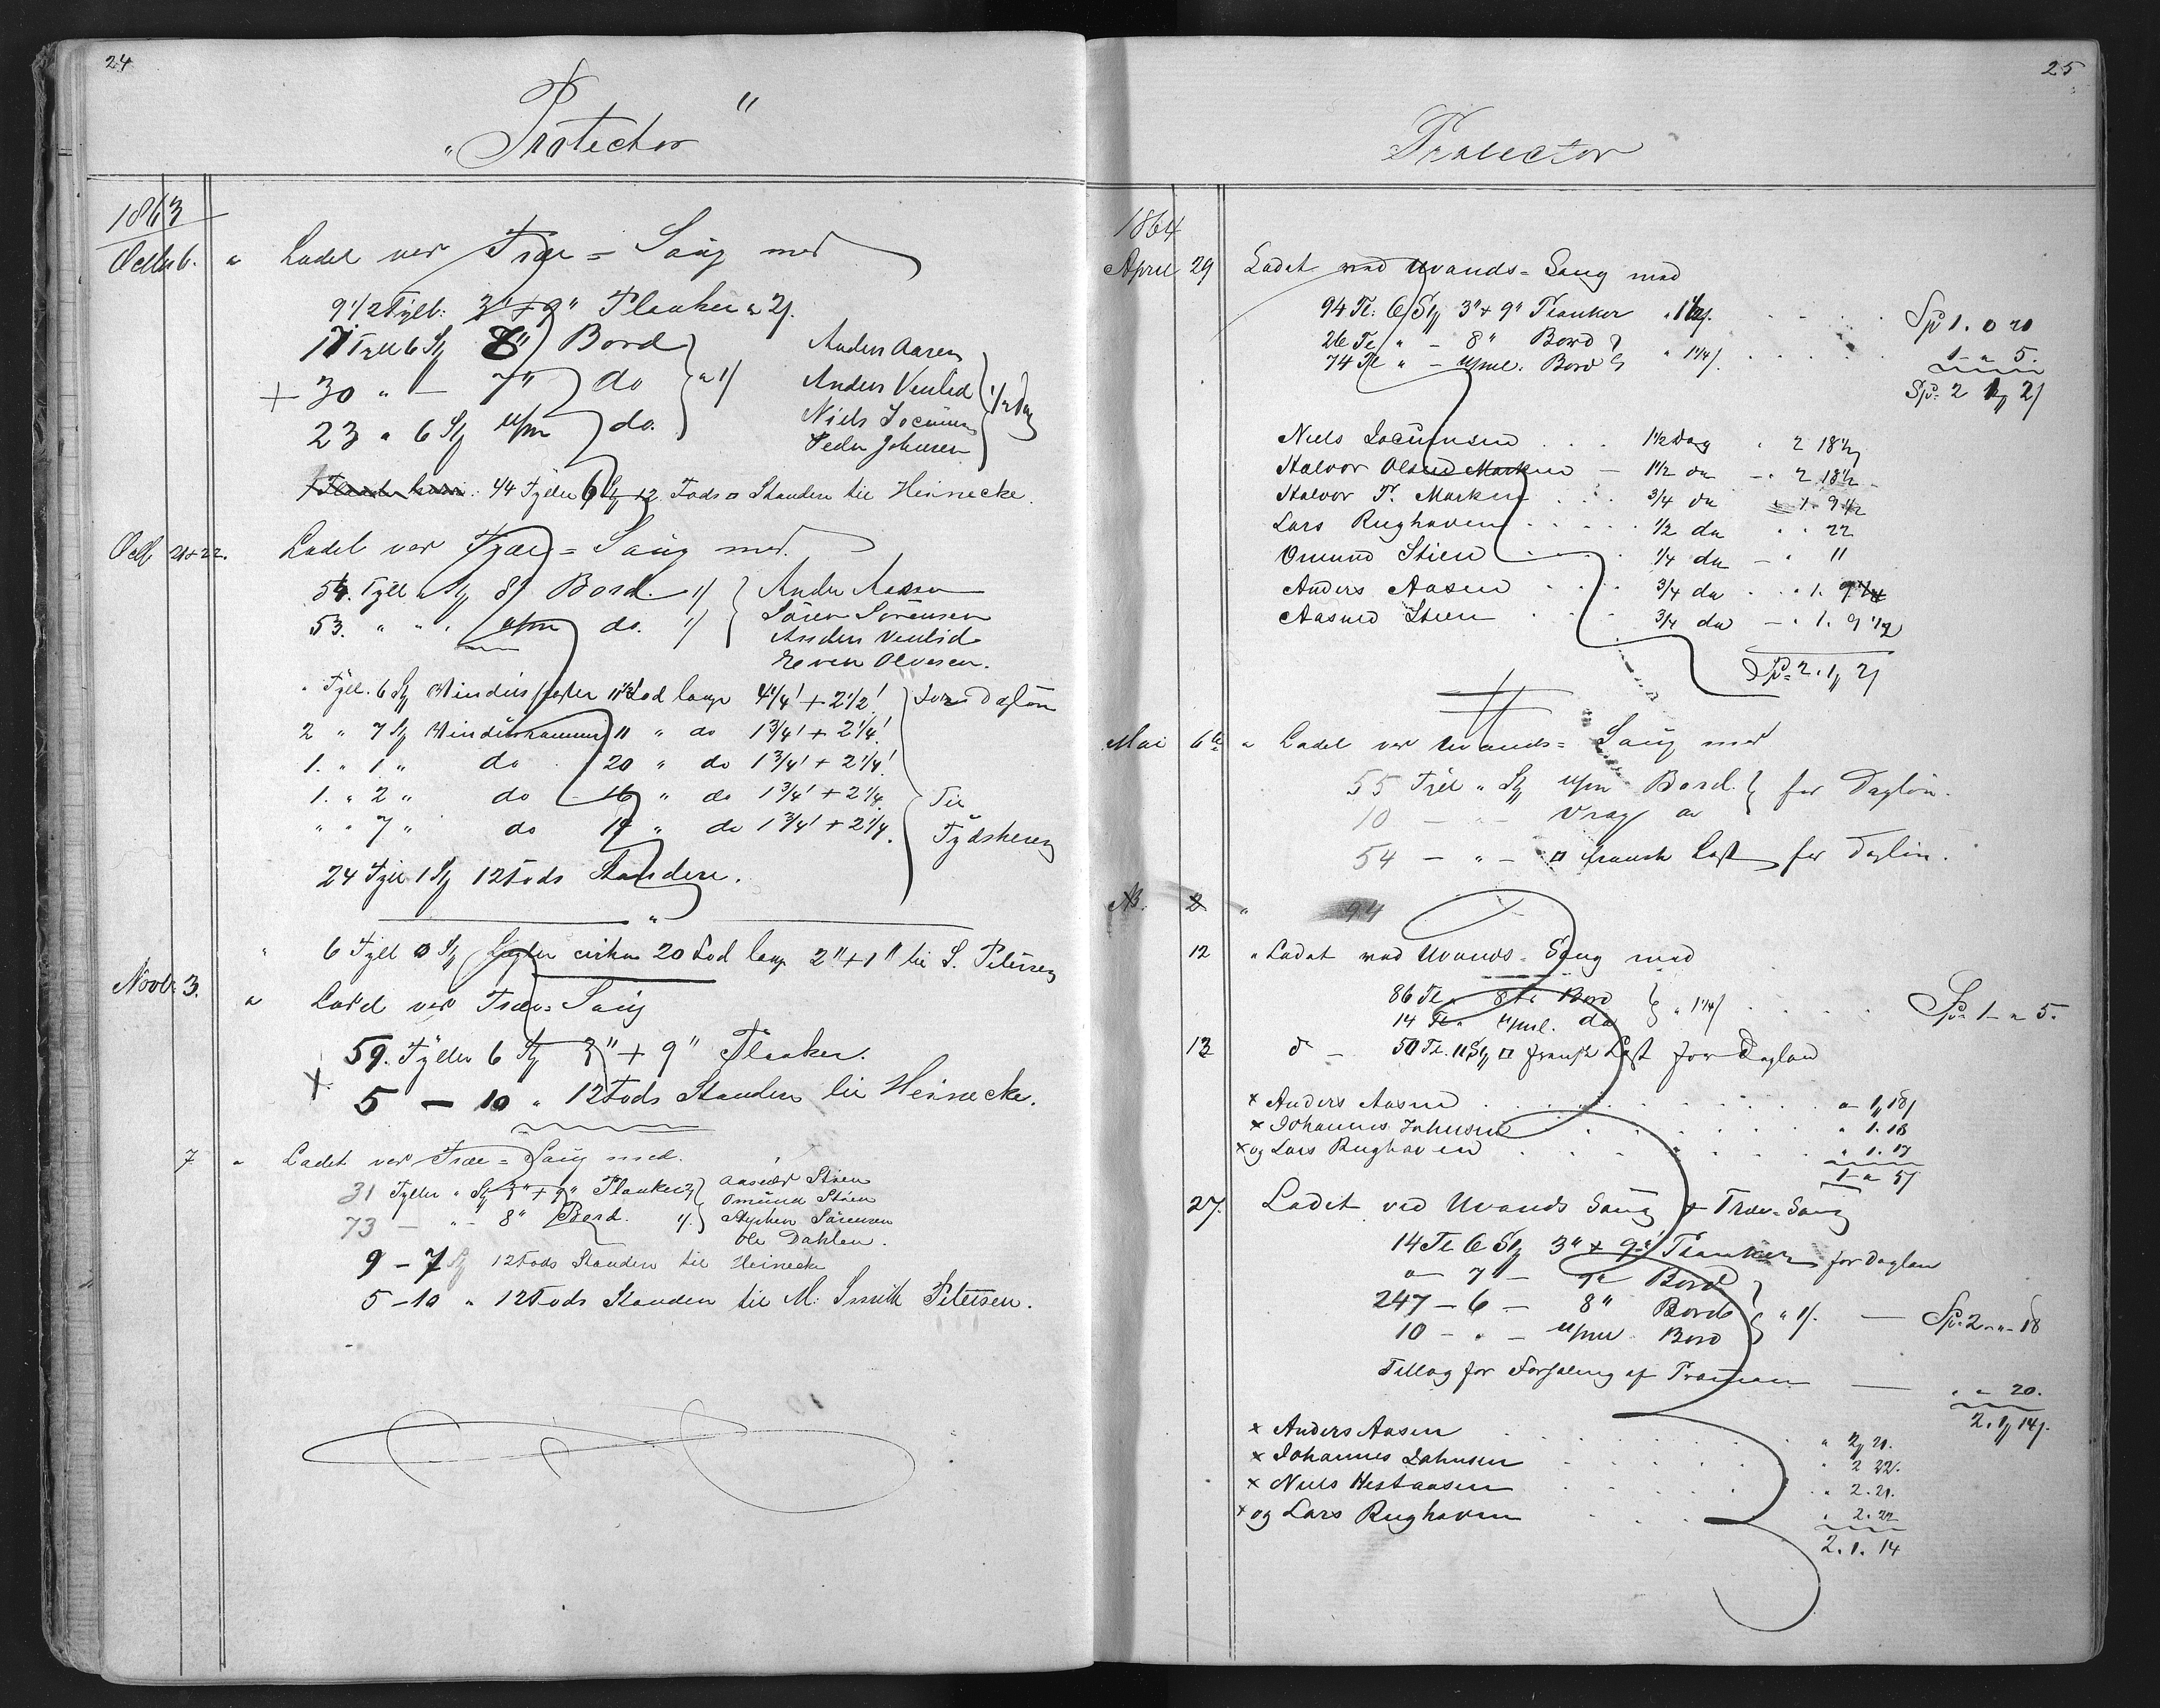 24
"Protector"
1863
Octbr 6. " Ladet ved Træ=Saug med
9 1/2 Tylt: 3"+9" Planker a 2/.
17 Tylt 6 St/ 8" Bord } a 1/ Anders Aasen
+ 30 " — 7" do Anders Venlid } 1/2 Dag
23 " 6 St/ u/m do. Niels Jocumsen
Peder Johnsen
44 Tylter 6 St/ 12 Fods □ Standere til Heinecke.
Octb 21+22. Ladet ved Træ=Saug med.
54. Tylt " St/ 8" Bord. 1/ } Anders Aasen
53. " " " u/m do. 1/ Søren Sørensen
Anders Venlid
Even Olvesen.
" Tylt. 6 St/ 4 1/4'+2 1/2' } for Dagløn
2 " 7 St/ 11 " do 1 3/4'+2 1/4'
1. " 1 " do 20 " do 1 3/4'+2 1/4'
1. " 2 " do 16 " do 1 3/4'+2 1/4. } Til
" " 7 " do 19 " do 1 3/4'+2 1/4.
24 Tylt 1 St/ 12 Fods Standere.
" 6 Tylt 0 St/ Legter cirka 20 Fod lange 2"+1" til S. Petersen
Novbr. 3. " Ladet ved Træ=Saug
59. Tylter 6 St/ 3"+9" Planker.
+ 5 — 10 " 12 Fods Standere til Heinecke.
7 " Ladet ved Træ=Saug med.
31 Tylter " St/ 3"+9" Planker 2/ } Aasuld Støen
73 — " - 8" Bord. 1/. Omund Støen
Stephen Sørensen
Ole Dahlen.
9 — 7 St/ 12 Fods Standere til Heinecke
5 — 10 " 12 Fods Standere til M. Smith Petersen.
25
Protector
1864
April 29 Ladet ved Uvands=Saug med
94 Tl: 6 St/ 3"+9" Planker " 1 1/2/. Sp 1. 0 20
26 Tl " - 8" Bord } " 1 1/4/. 1 - " 5.
74 Tl " - u/ml. Bord Sp: 2 1/ 2/
Niels Jocumsen 1 1/2 Dag " 2 18 1/2
Halvor Olsen Marken — 1 1/2 da — " 2 18 1/2
Halvor T. Marken 3/4 da " 1. 9 1/2
Lars Rughaven 1/2 da " " 22
Omund Stien 1/4 da — " 11
Anders Aasen 3/4 da " 1. 9 1/4
Aasuld Steen 3/4 da — " 1. 9 1/2
Sp: 2. 1/ 2/
Mai 6te " Ladet ved Uvands=Saug med
55 Tylt " St/ u/m Bord. } for Dagløn.
10 — " — Vrag da
54 — " — □ fransk Last for Dagløn.
2 " 94
12 " Ladet ved Uvands=Saug med
86 Tl " 8te Bord } " 1 1/4/ Sp: 1 - " 5.
14 Tl " u/ml. do
13 d — 50 Tl. 11 St/ □ fransk Last for Dagløn
x Anders Aasen " 1/ 18/
x Johannes Johnsen " 1. 18
x og Lars Rughaven " 1. 17
1 - " 5/
27. Ladet ved Uvands Saug + Træ=Saug
14 Tl 6 St/ 3"+9" Planker for Dagløn
" 7 — Bord
247 — 6 — 8" Bord } " 1/. — Sp: 2 - " - 18
10 — " — u/ml Bord
Tillæg for Forhaling af Prammen — " " 20.
2. 1/ 14/.
x Anders Aasen " 2/ 21.
x Johannes Johnsen " 2 22.
x Niels Hestaasen " 2. 21.
x og Lars Rughaven " 2. 22
2. 1. 14